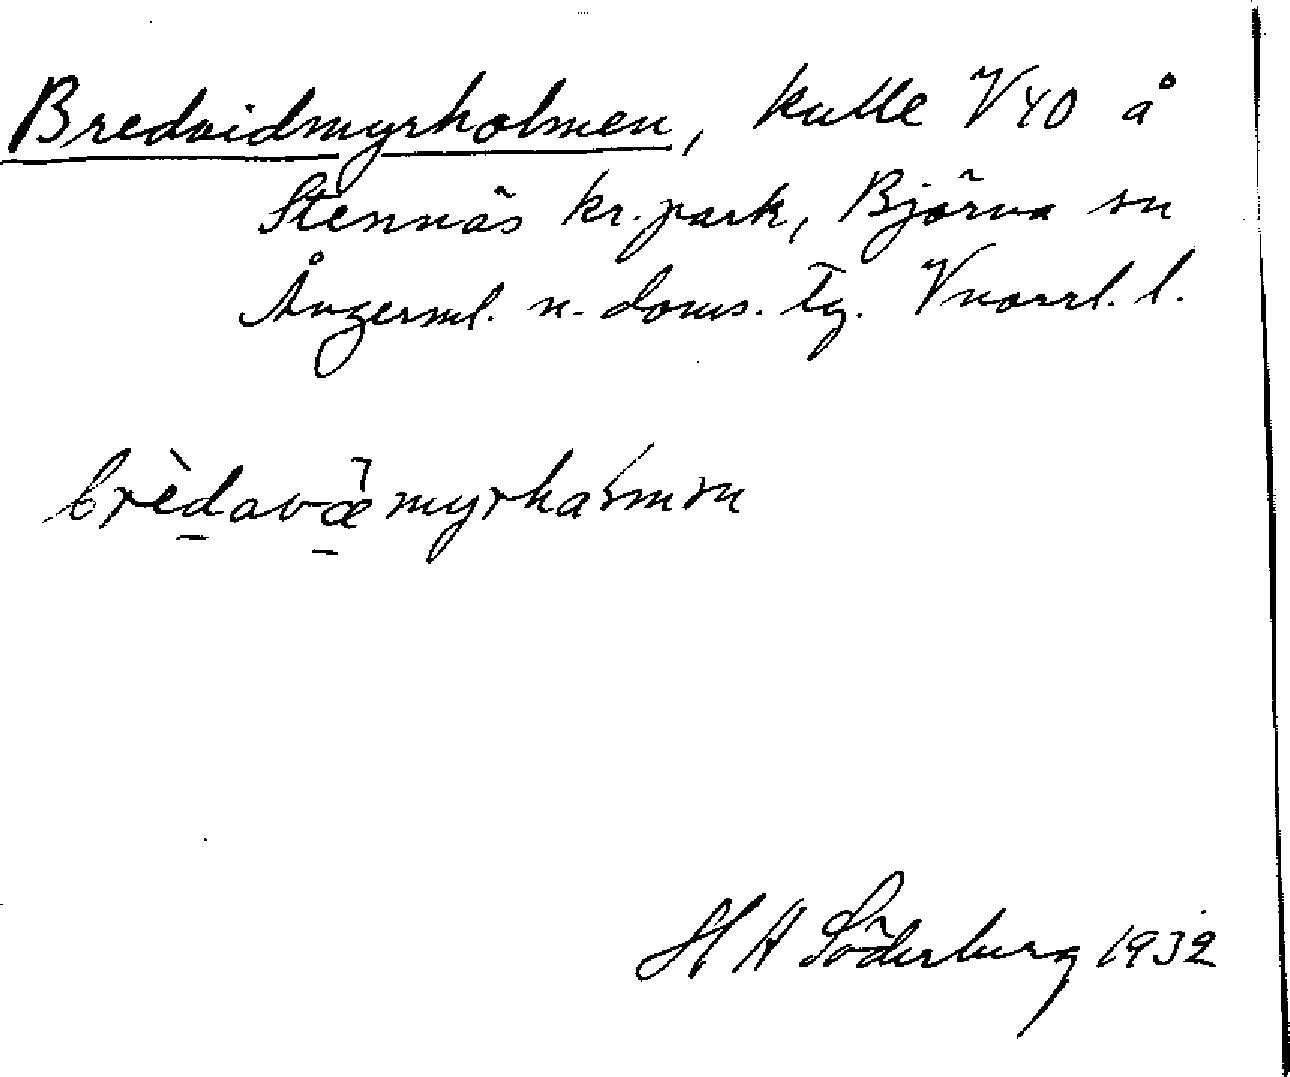 Bredvidmyrholmen, kulle V 40 å
Stennäs kr. park, Björna sn
Ångerml. n. doms. tg. Vnorrl. l.
brèdavǣmyrhaḷmən
H A Söderberg 1932